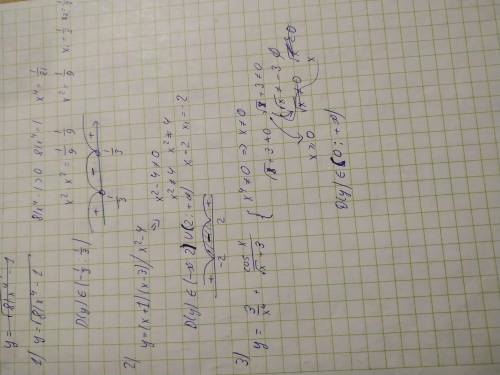 y = √(81x⁴ - 1)
1) y = √(81x⁴ - 1 81x⁴ - 1 > 0 81x⁴ = 1 x⁴ = 1/81
x² x² = 1/9 1/9 x² = 1/9 x₁ = 1/3 x₂ = 1/3
+ - +
1/3 1/3
D(y) ∈ (-1/3; 1/3)
2) y = (x+1)(x-3)/x²-4 ⇒ x² - 4 ≠ 0
x² ≠ 4 x² = 4
x = 2 x₁ = -2
+ - +
-2 2
D(y) ∈ (-∞; 2) ∪ (2; +∞)
3)
y = 3/x⁴ + cos x/(√x + 3) { x⁴ ≠ 0 ⇒ x ≠ 0
√x + 3 ≠ 0 √x + 3 ≠ 0
√x ≠ -3
√x ≠ 0
x > 0 x
D(y) ∈ (0; +∞)